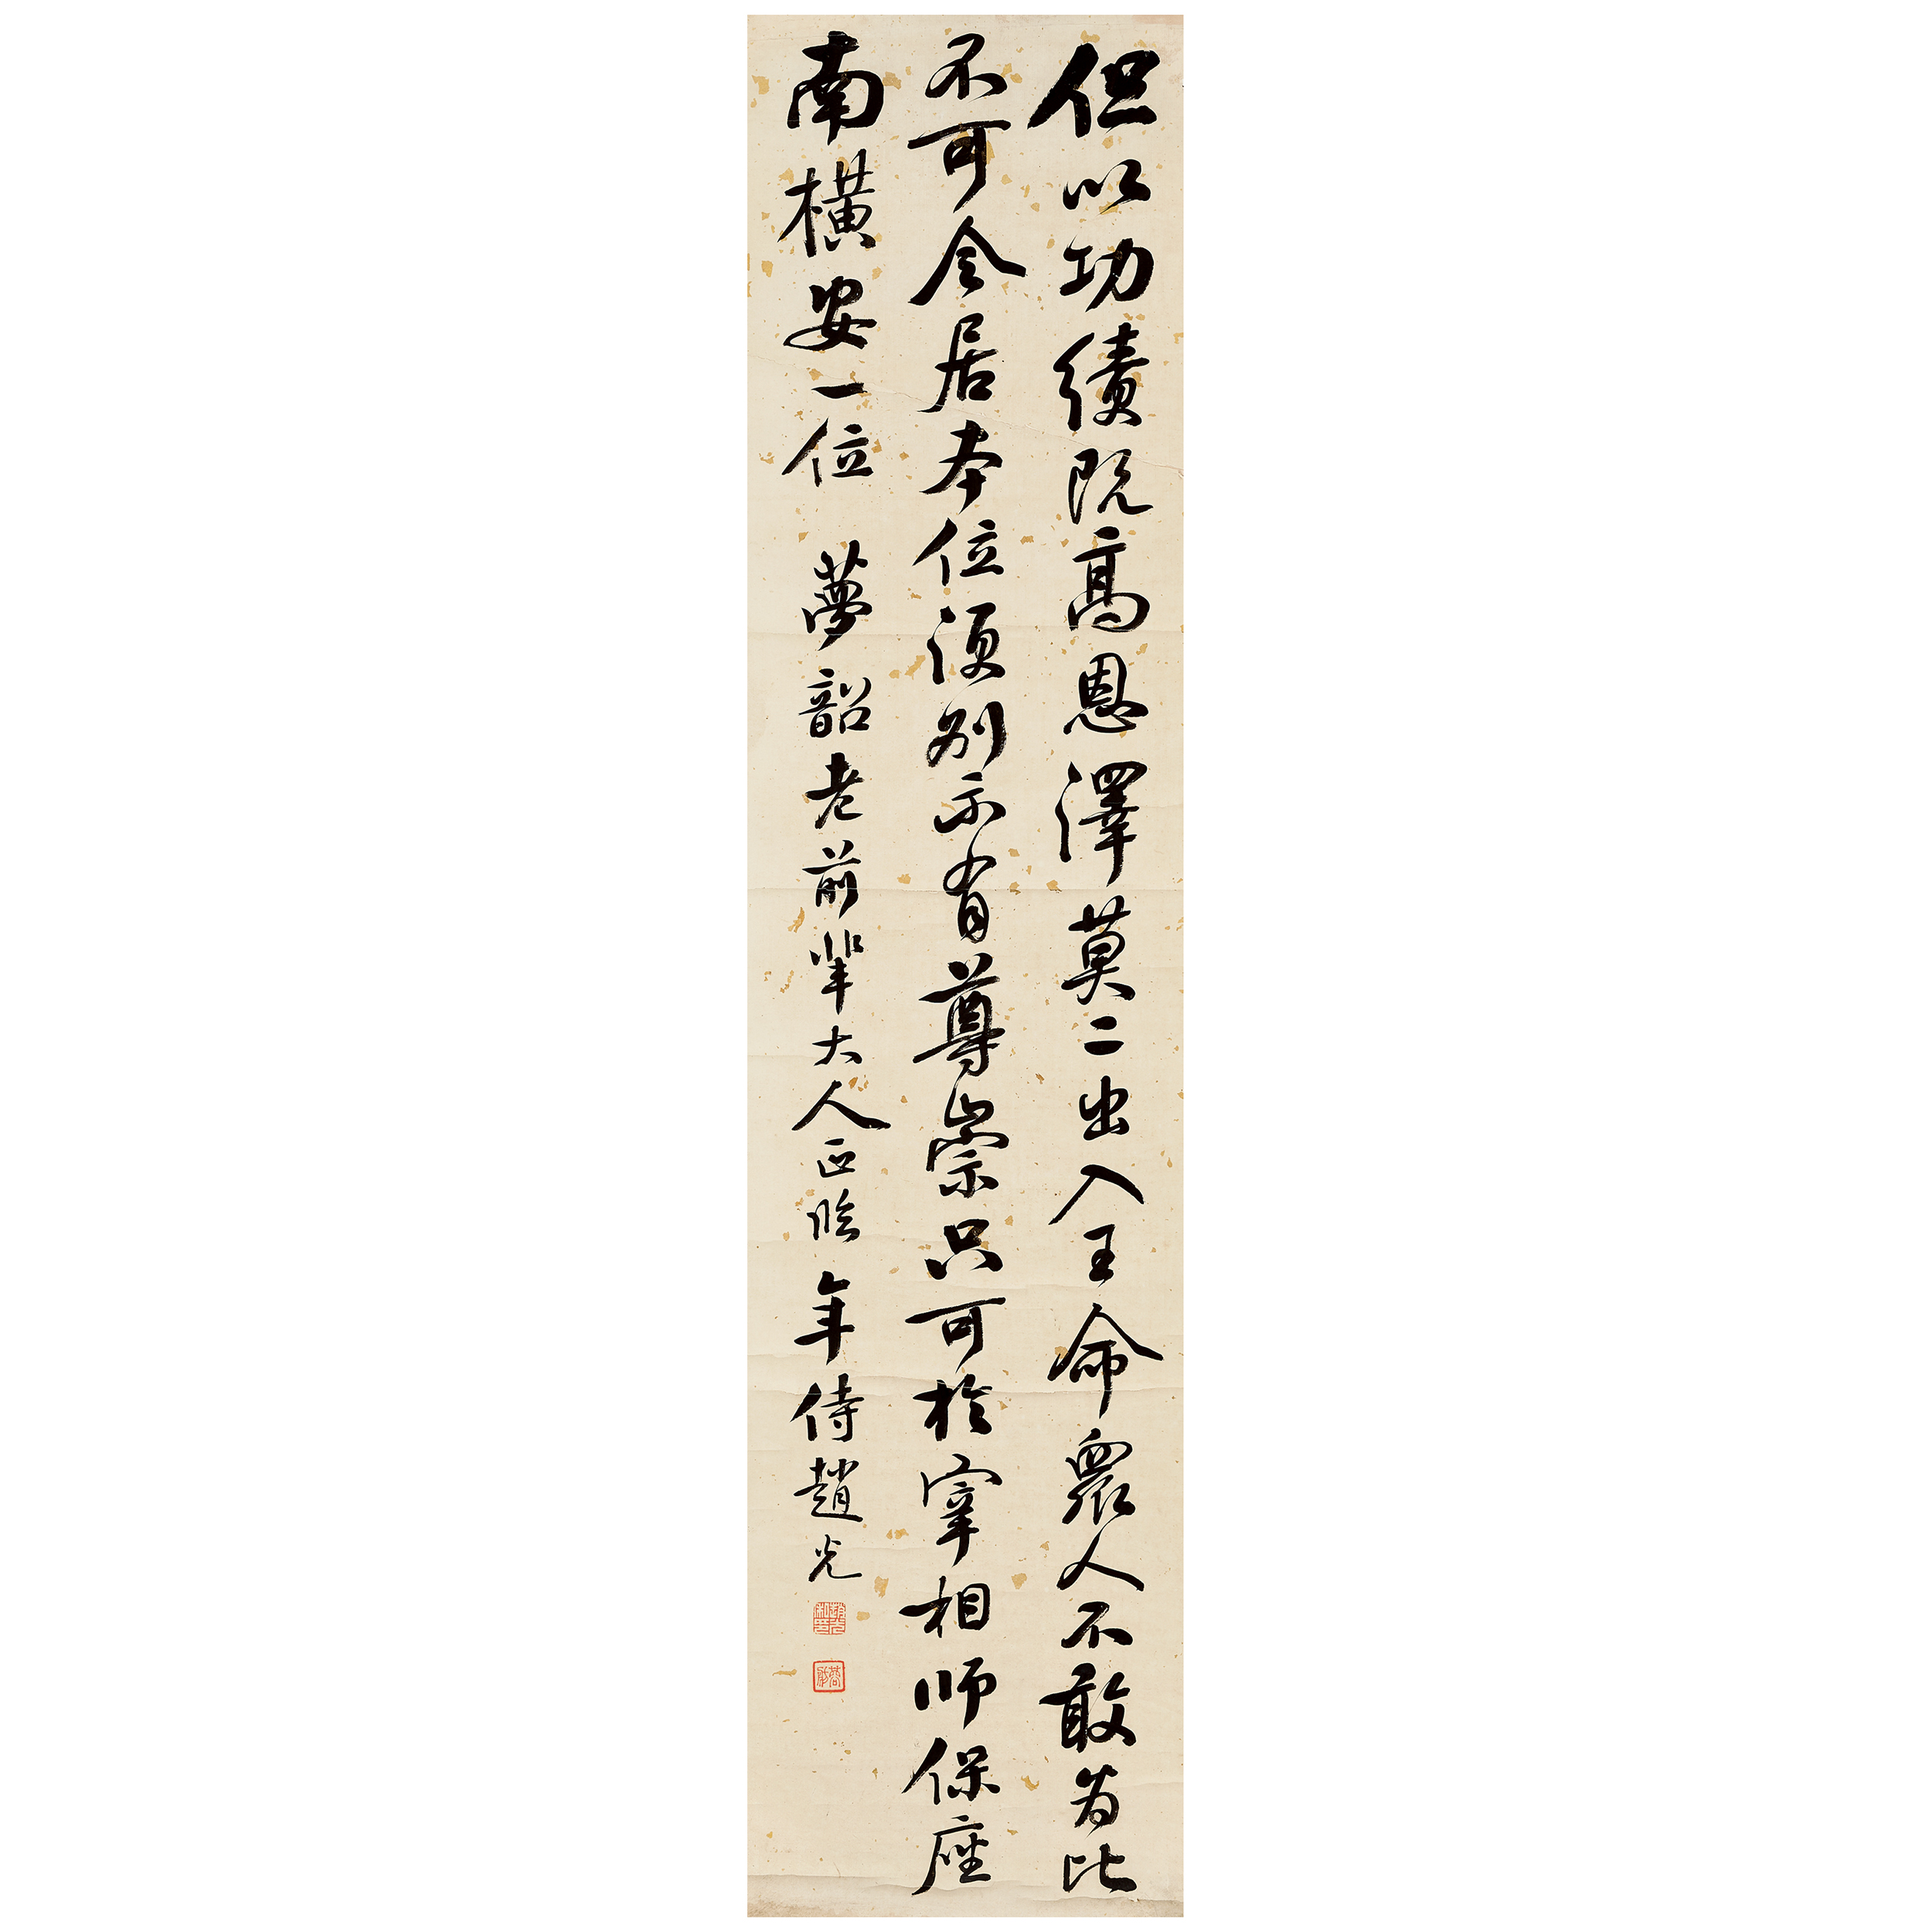 但以功績既高恩澤莫二出入王命衆人不敢為比
不可令居本位須別示有尊崇只可於宰相師保座
南橫安一位 夢韶老前輩大人正臨 年侍趙光
趙光私印
蓉舫